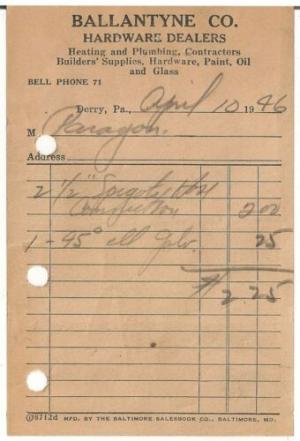 BALLANTYNE CO.
HARDWARE DEALERS
Heating and Plumbing, Contractors
Builders' Supplies, Hardware, Paint, Oil
and Glass
BELL PHONE 71
Derry, Pa., April 10 1946
M Paragon.
Address
2 1/2" Hose
Connection 2 00
1 - 45° ell Galv. 25
$ 2.25
MFD. BY THE BALTIMORE SALESBOOK CO., BALTIMORE, MD.